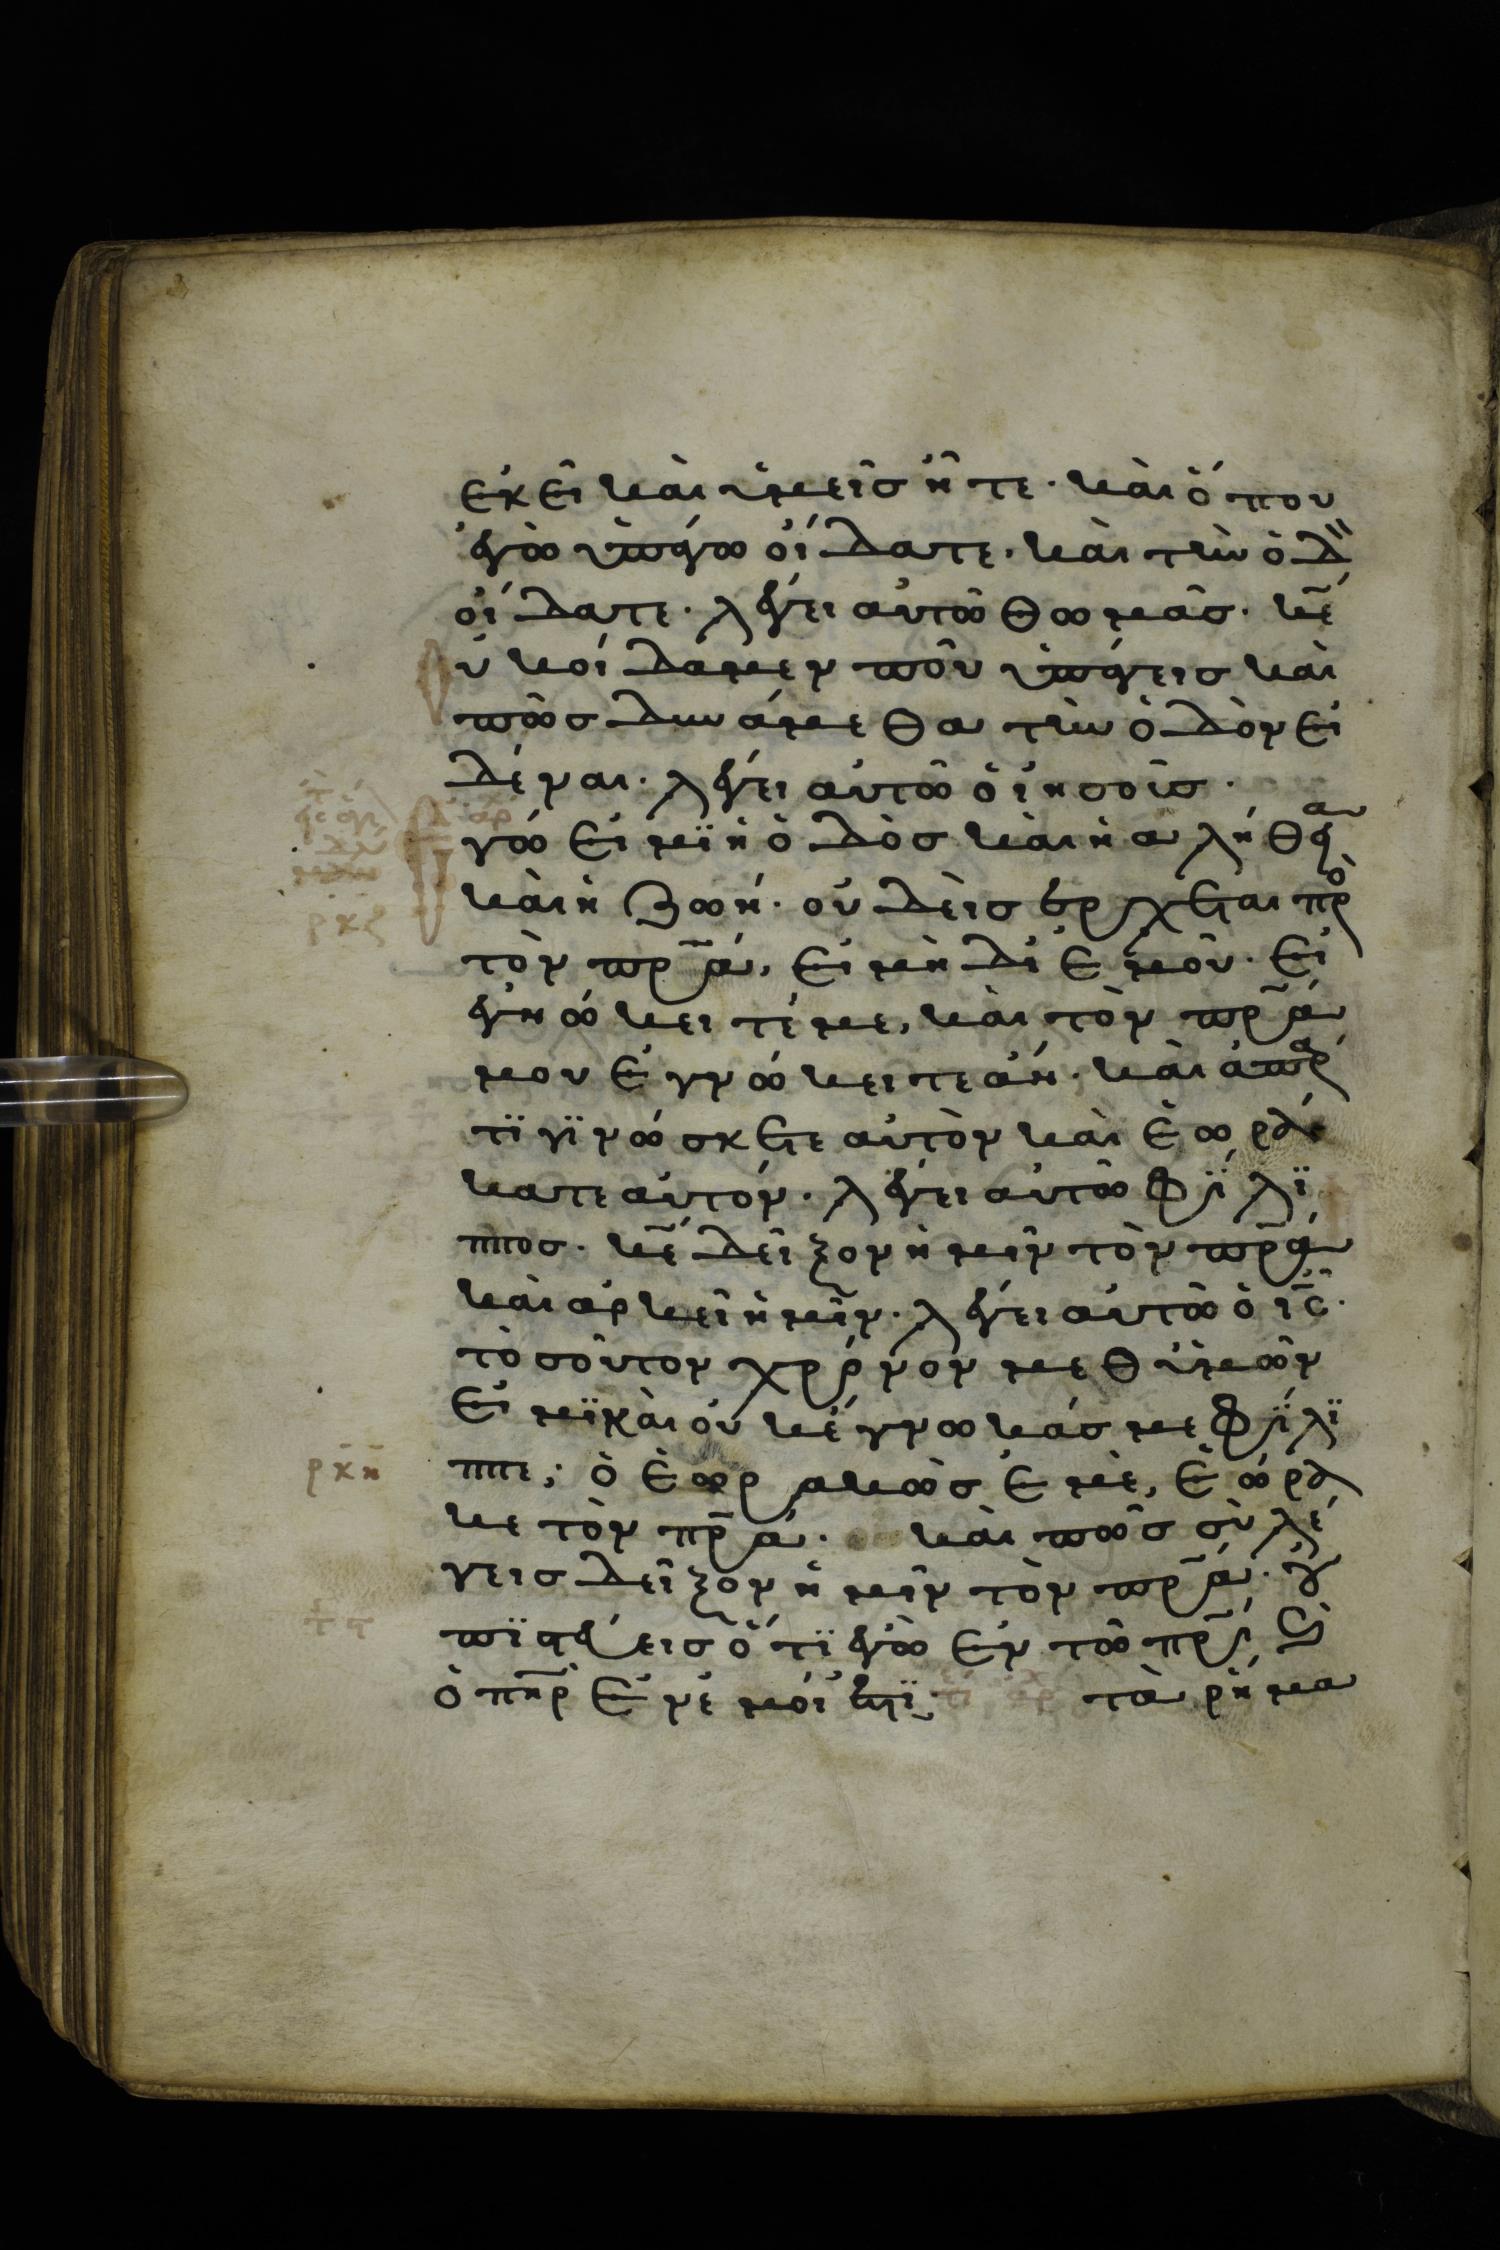 ἐκεῖ καὶ ὑμεῖσ ἦτε· καὶ ὅπου
ἐγὼ ὑπάγω οἴδατε· καὶ τὴν ὁδ
οἴδατε· λέγει αὐτῶ θωμᾶσ· κ̅ε
ὐκοίδαμεν ποῦ ὑπάγεισ καὶ
πῶσ δυνάμεθα τὴν ὁδὸν εἰ
δέναι· λέγει αὐτῶ ὁ ἰησοῦσ·
γώ εἰμϊ ἡ ὁδὸσ καὶ ἡ ἀλήθεια
καὶ ἡ ζωή· οὐδεὶσ ἔρχεται πρὸ
τὸν πρ̅α, εἰ μὴ δι ἐμοῦ· εἰ
ἐγνώκειτέ με, καὶ τὸν πρ̅α
μου ἐγνώκειτε ἄν· καὶ ἀπάρ
τϊ γϊνώσκετε αὐτὸν καὶ ἑωρά
κατε αὐτόν· λέγει αὐτῶ φϊλϊ
πποσ· κ̅ε δεῖξον ἡμῖν τὸν πρ̅α
καὶ ἀρκεῖ ἡμῖν· λέγει αὐτῶ ὁ ι̅σ·
τὸσοῦτον χρόνον μεθ ὑμῶν
εἰμϊ καὶ οὐκ ἔγνωκάσ με φϊλϊ
ππε; ὁ ἑωρακὼσ ἐμὲ, ἑώρα
κε τὸν πρ̅α· καὶ πῶσ σὺ λέ
γεισ δεῖξον ἡμῖν τὸν πρ̅α· οὐ
πϊστεύεισ ὅτϊ ἐγὼ ἐν τῶ πρ̅ι καὶ
ὁ πη̅ρ ἐν ἐμοί ἐστϊ· τὰ ῥήμα
ρκζ
ρκη